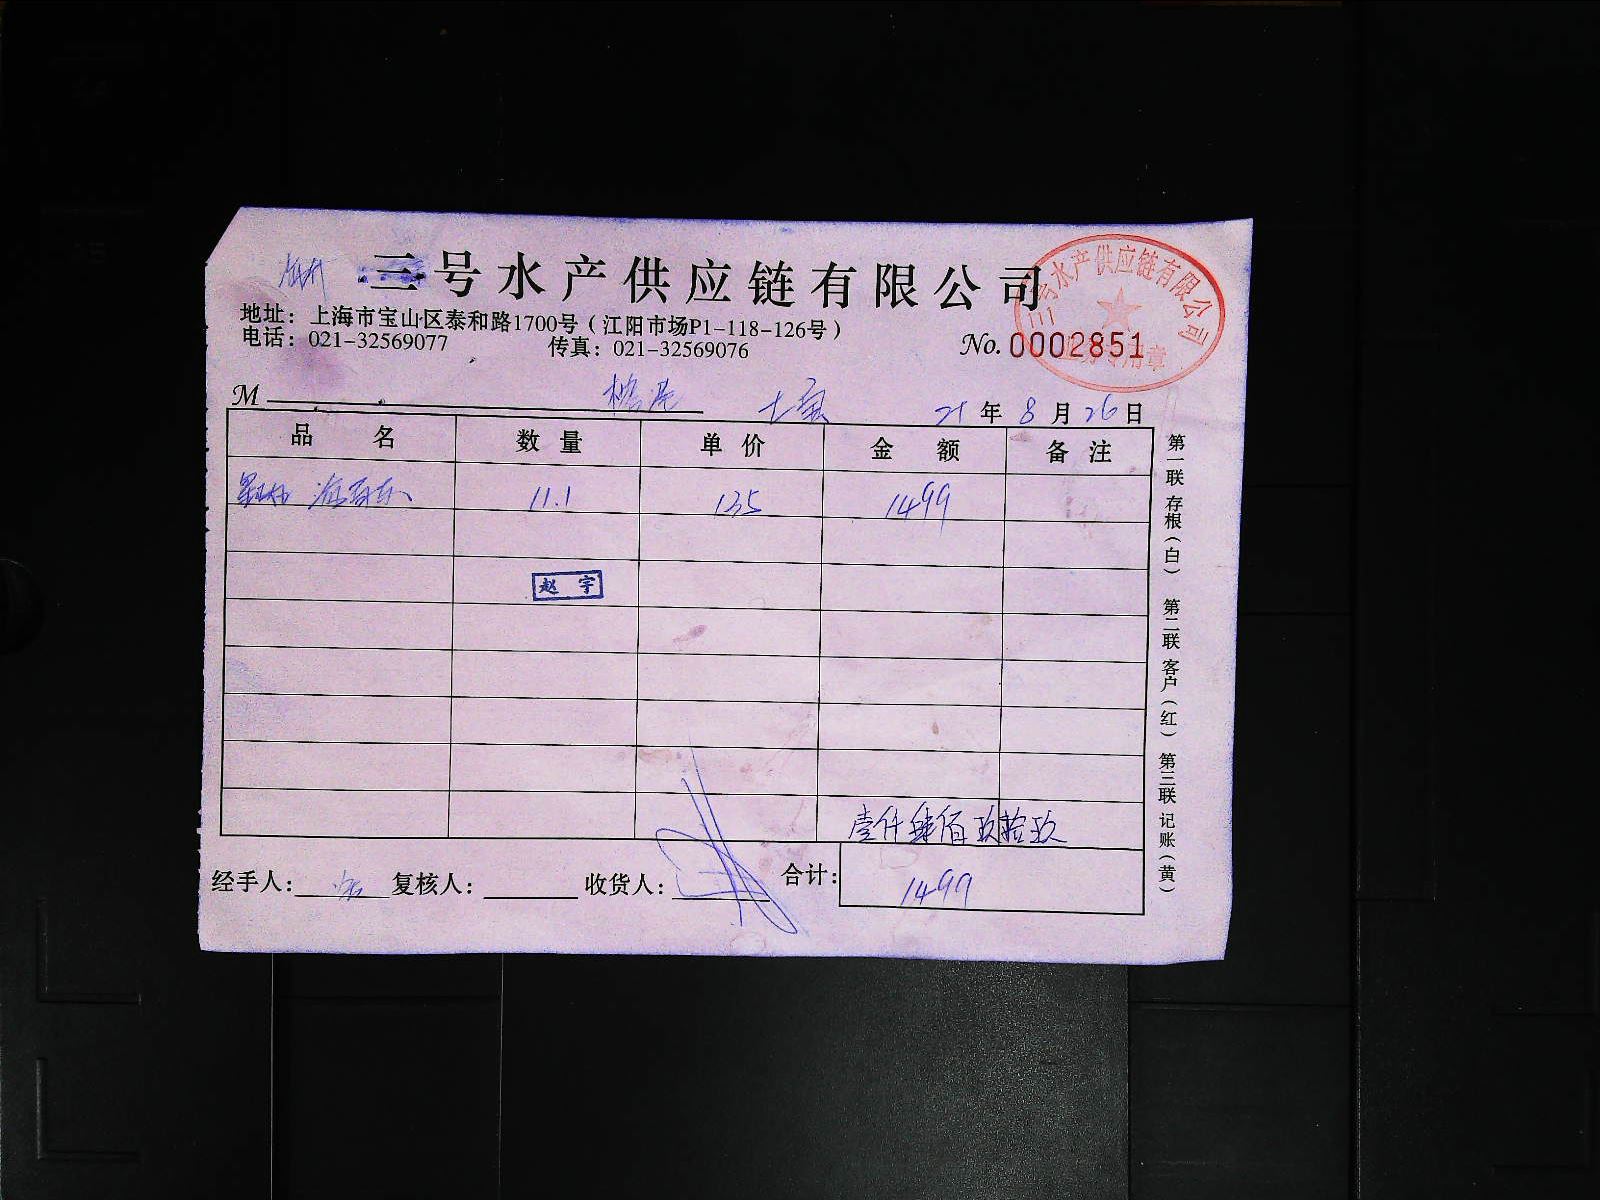 三号水产供应链有限公司
地址：上海市宝山区泰和路1700号（江阳市场P1-118-126号）
电话：021-32569077 传真：021-32569076
No.0002851
三号水产供应链有限公司
用章
M 21年8月26日
品名 数量 单价 金额 备注
11.1 135 1499
赵宇
壹仟肆佰玖拾玖
经手人： 复核人： 收货人： 合计： 1499
第一联 存根（白） 第二联 客户（红） 第三联 记账（黄）